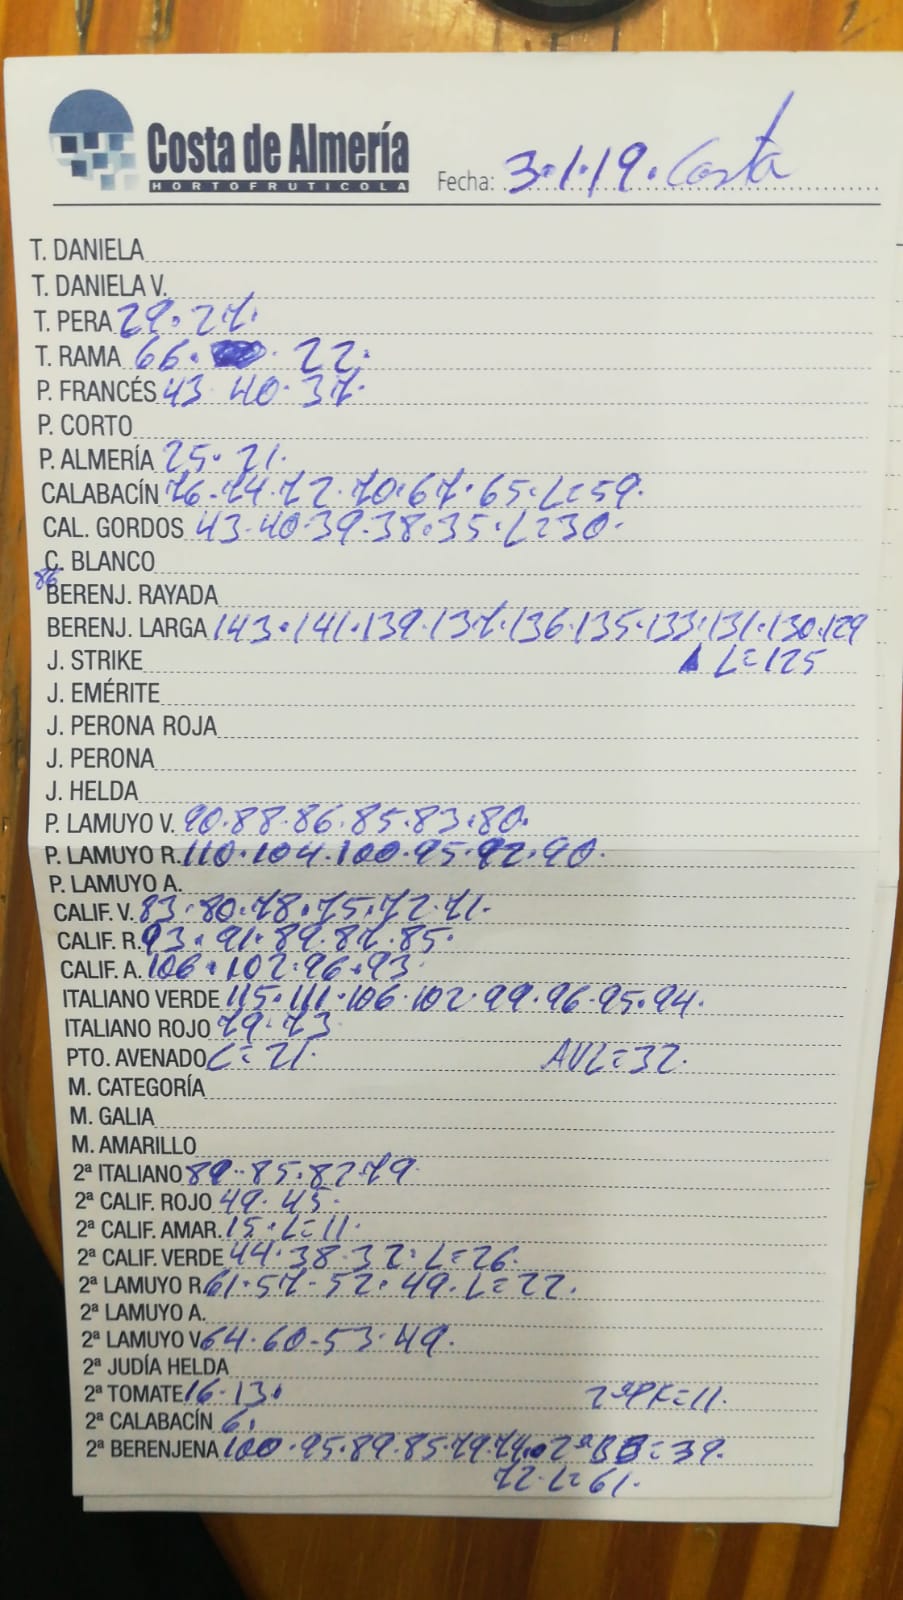 Costa de Almería
HORTOFRUTICOLA
Fecha: 3.1.19. Costa
T. DANIELA
T. DANIELA V.
T. PERA 29. 27.
T. RAMA 66. 22.
P. FRANCÉS 43 40. 37.
P. CORTO
P. ALMERÍA 25. 21.
CALABACÍN 76-74.72.70.67.65.L=59.
CAL. GORDOS 43.40.39.38.35.L=30.
C. BLANCO
86
BERENJ. RAYADA
BERENJ. LARGA 143.141.139.137.136.135.133.131.130.129
J. STRIKE L=125
J. EMÉRITE
J. PERONA ROJA
J. PERONA
J. HELDA
P. LAMUYO V. 90.88.86.85.83.80.
P. LAMUYO R. 110.104.100.95.92.90.
P. LAMUYO A.
CALIF. V. 83.80.78.75.72.71.
CALIF. R. 93.91.89.87.85.
CALIF. A. 106.102.96.93
ITALIANO VERDE 115.111.106.102.99.96.95.94.
ITALIANO ROJO 79.73
PTO. AVENADO L=21. AVL=32.
M. CATEGORÍA
M. GALIA
M. AMARILLO
2ª ITALIANO 89.85.82.79
2ª CALIF. ROJO 49.45.
2ª CALIF. AMAR. 15.L=11.
2ª CALIF. VERDE 44.38.32.L=26.
2ª LAMUYO R. 61.57-52.49.L=22.
2ª LAMUYO A.
2ª LAMUYO V. 64.60-53.49.
2ª JUDÍA HELDA
2ª TOMATE 16.13. 2ªPK=11.
2ª CALABACÍN 6.
2ª BERENJENA 100.95.89.85.79.74. 2ªBB=39.
72.L=61.